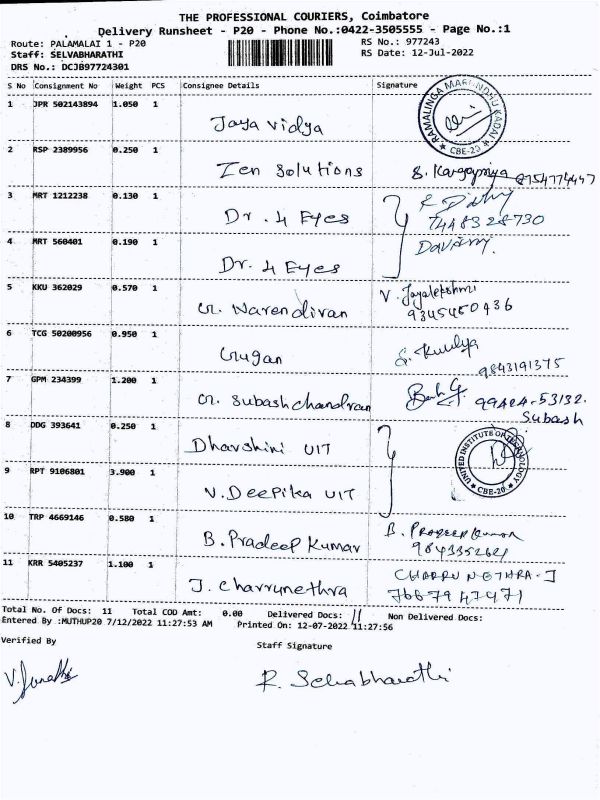 THE PROFESSIONAL COURIERS, Coimbatore
Delivery Runsheet - P20 - Phone No.:0422-3505555 - Page No.:1
Route: PALAMALAI 1 - P20 RS No.: 977243
Staff: SELVABHARATHI RS Date: 12-Jul-2022
DRS No.: DCJB97724301
S No Consignment No Weight PCS Consignee Details Signature
1 JPR 502143894 1.050 1 Jaya Vidya RAMALINGA MARUNDHU KADAI CBE-20
2 RSP 2389956 0.250 1 Zen Solutions 8754774447
3 MRT 1212238 0.130 1 Dr. 4 Eyes
7448328730
4 MRT 560401 0.190 1 Dr. 4 Eyes
5 KKU 362029 0.570 1 Narendivan V. Jayalekshmi
9345450436
6 TCG 50200956 0.950 1 9843191375
7 GPM 234399 1.200 1 Subash chandran
Subash
8 DDG 393641 0.250 1 Dharshini UIT UNITED INSTITUTE OF TECHNOLOGY CBE-20
9 RPT 9106801 3.900 1 V. Deepika UIT
10 TRP 4669146 0.580 1 B. Pradeep Kumar B. Pradeep Kumar
11 KRR 5405237 1.100 1 J. Charrunethra CHARRUNETHRA. J
7667947471
Total No. Of Docs: 11 Total COD Amt: 0.00 Delivered Docs: 11 Non Delivered Docs:
Entered By :MUTHUP20 7/12/2022 11:27:53 AM Printed On: 12-07-2022 11:27:56
Verified By
Staff Signature
R. Selvabharathi